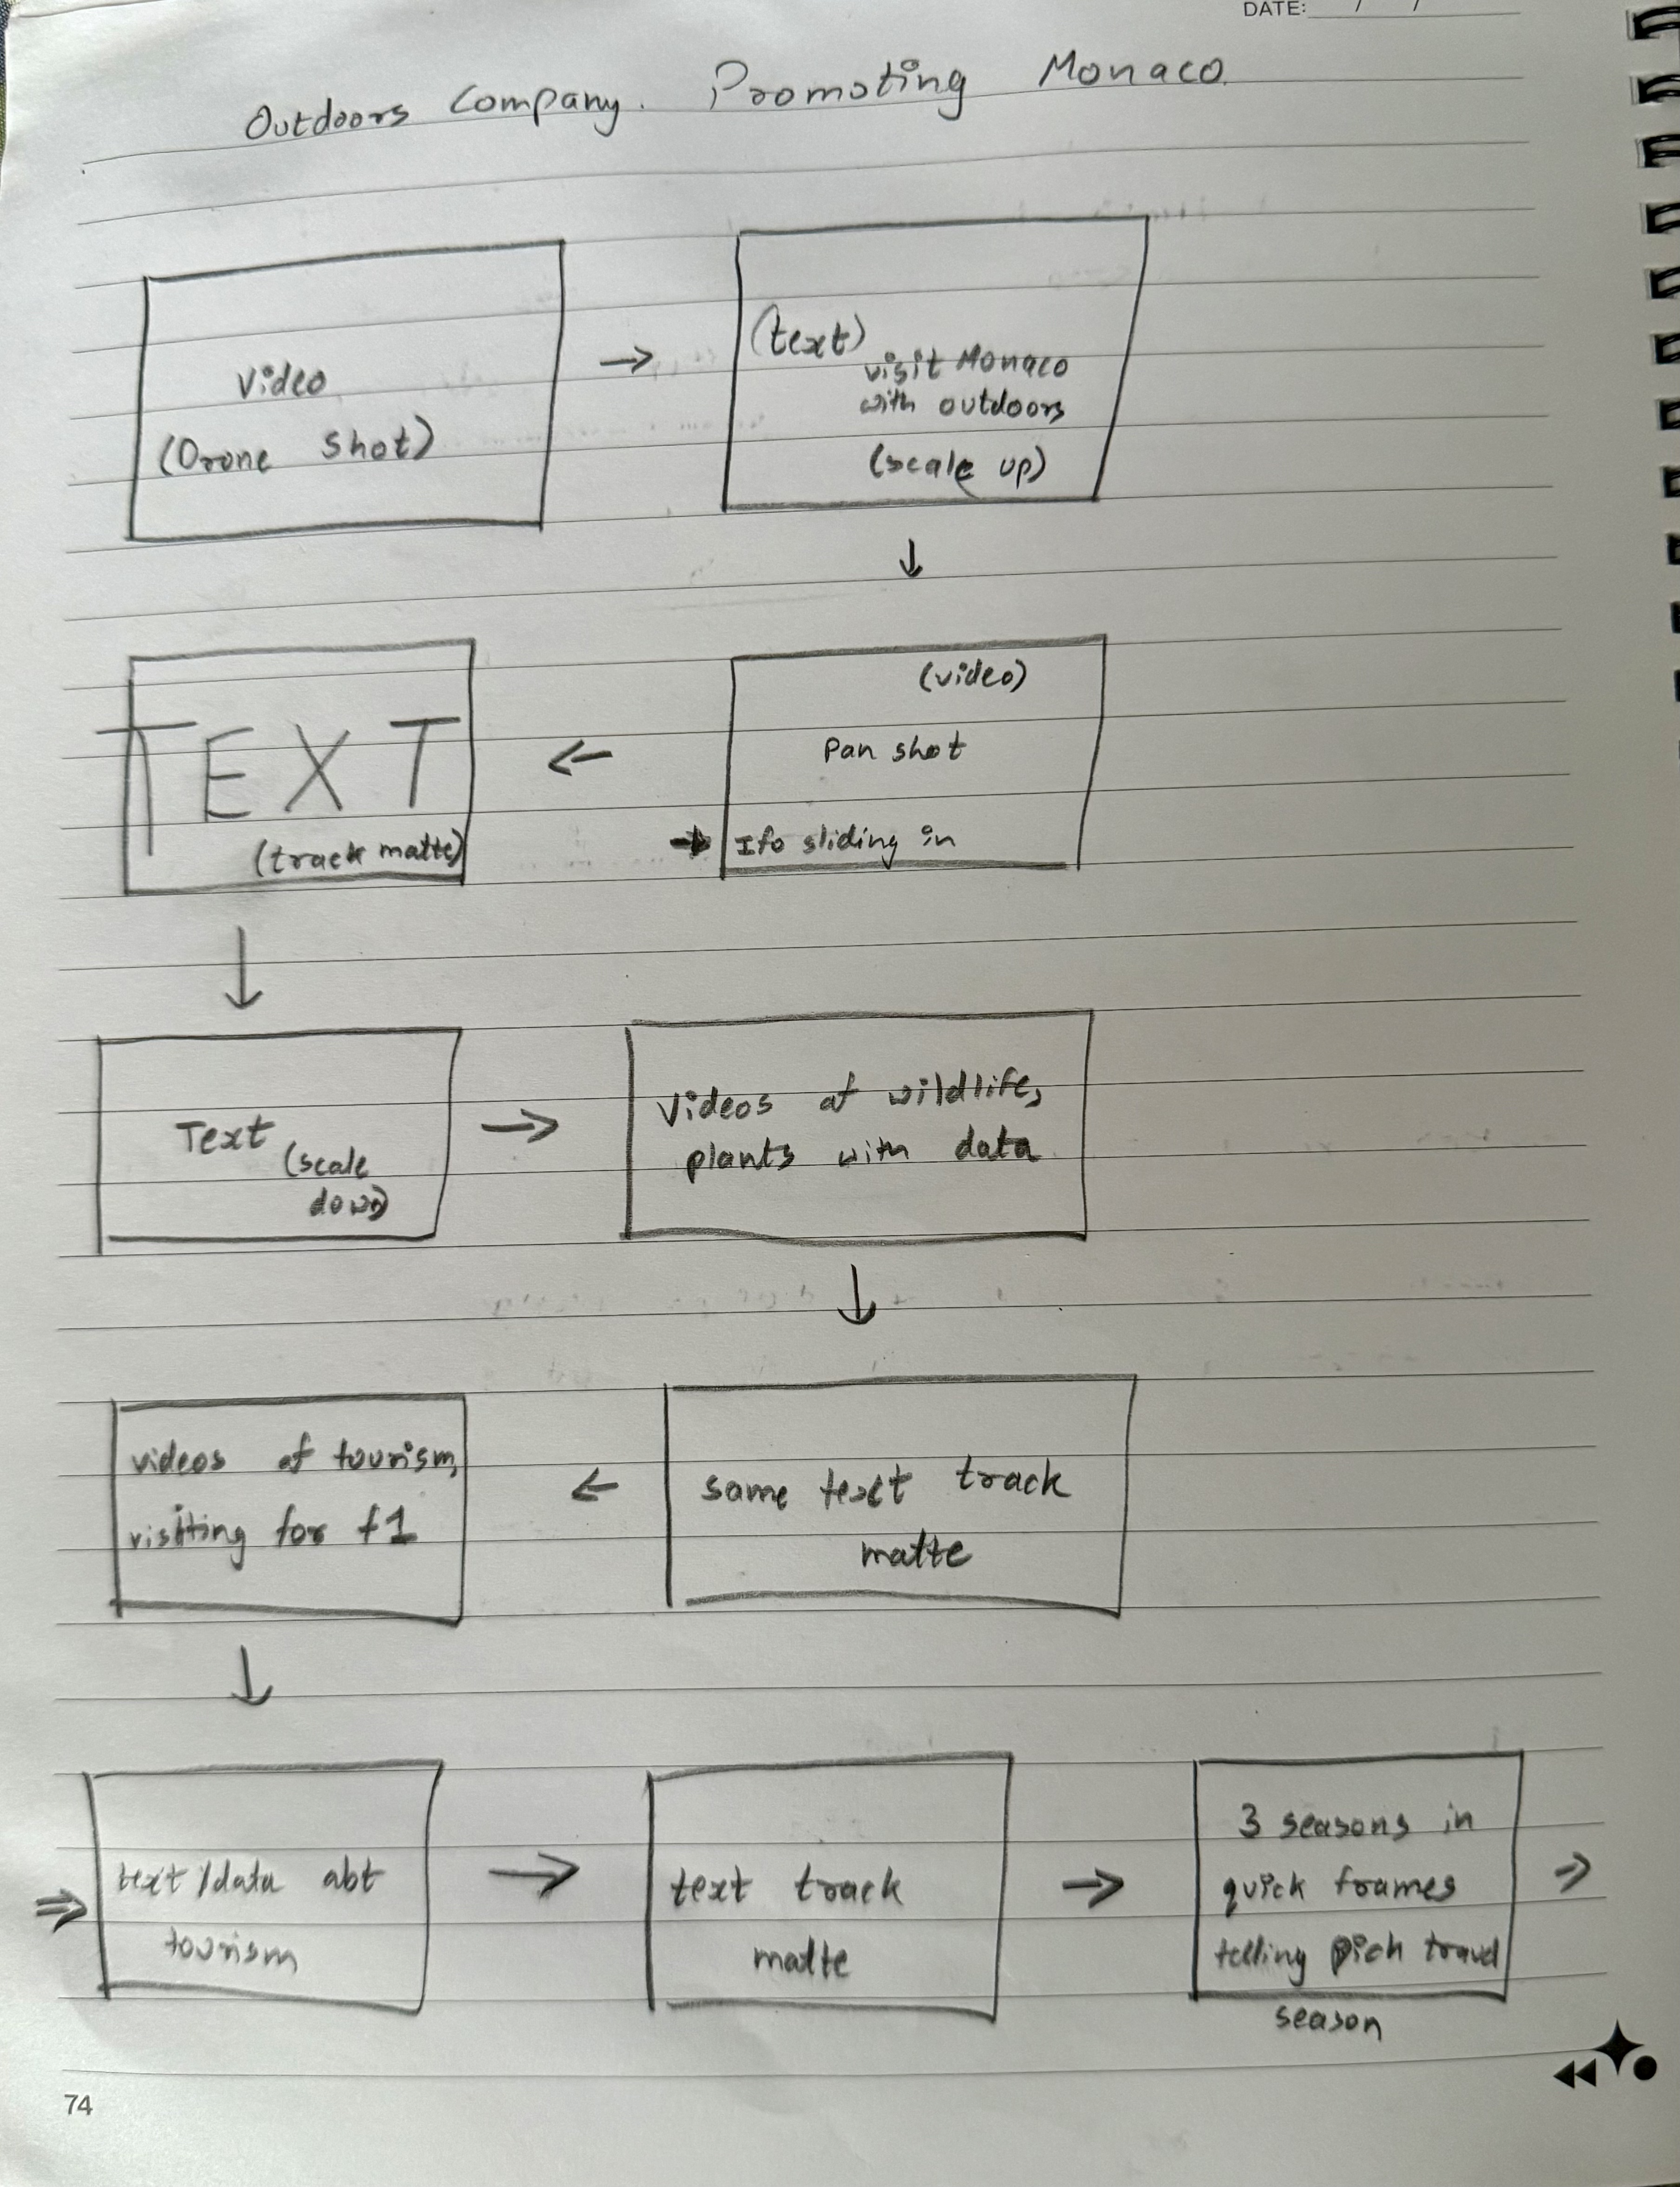 DATE: / /
Outdoors Company. Promoting Monaco
Video
(Drone Shot)
(text)
visit Monaco
with outdoors
(scale up)
(video)
Pan shot
Ifo sliding in
TEXT
(track matte)
Text
(scale
down)
Videos of wildlife,
plants with data
same text track
matte
videos of tourism,
visiting for f1
text/data abt
tourism
text track
matte
3 seasons in
quick frames
telling pich travel
season
74